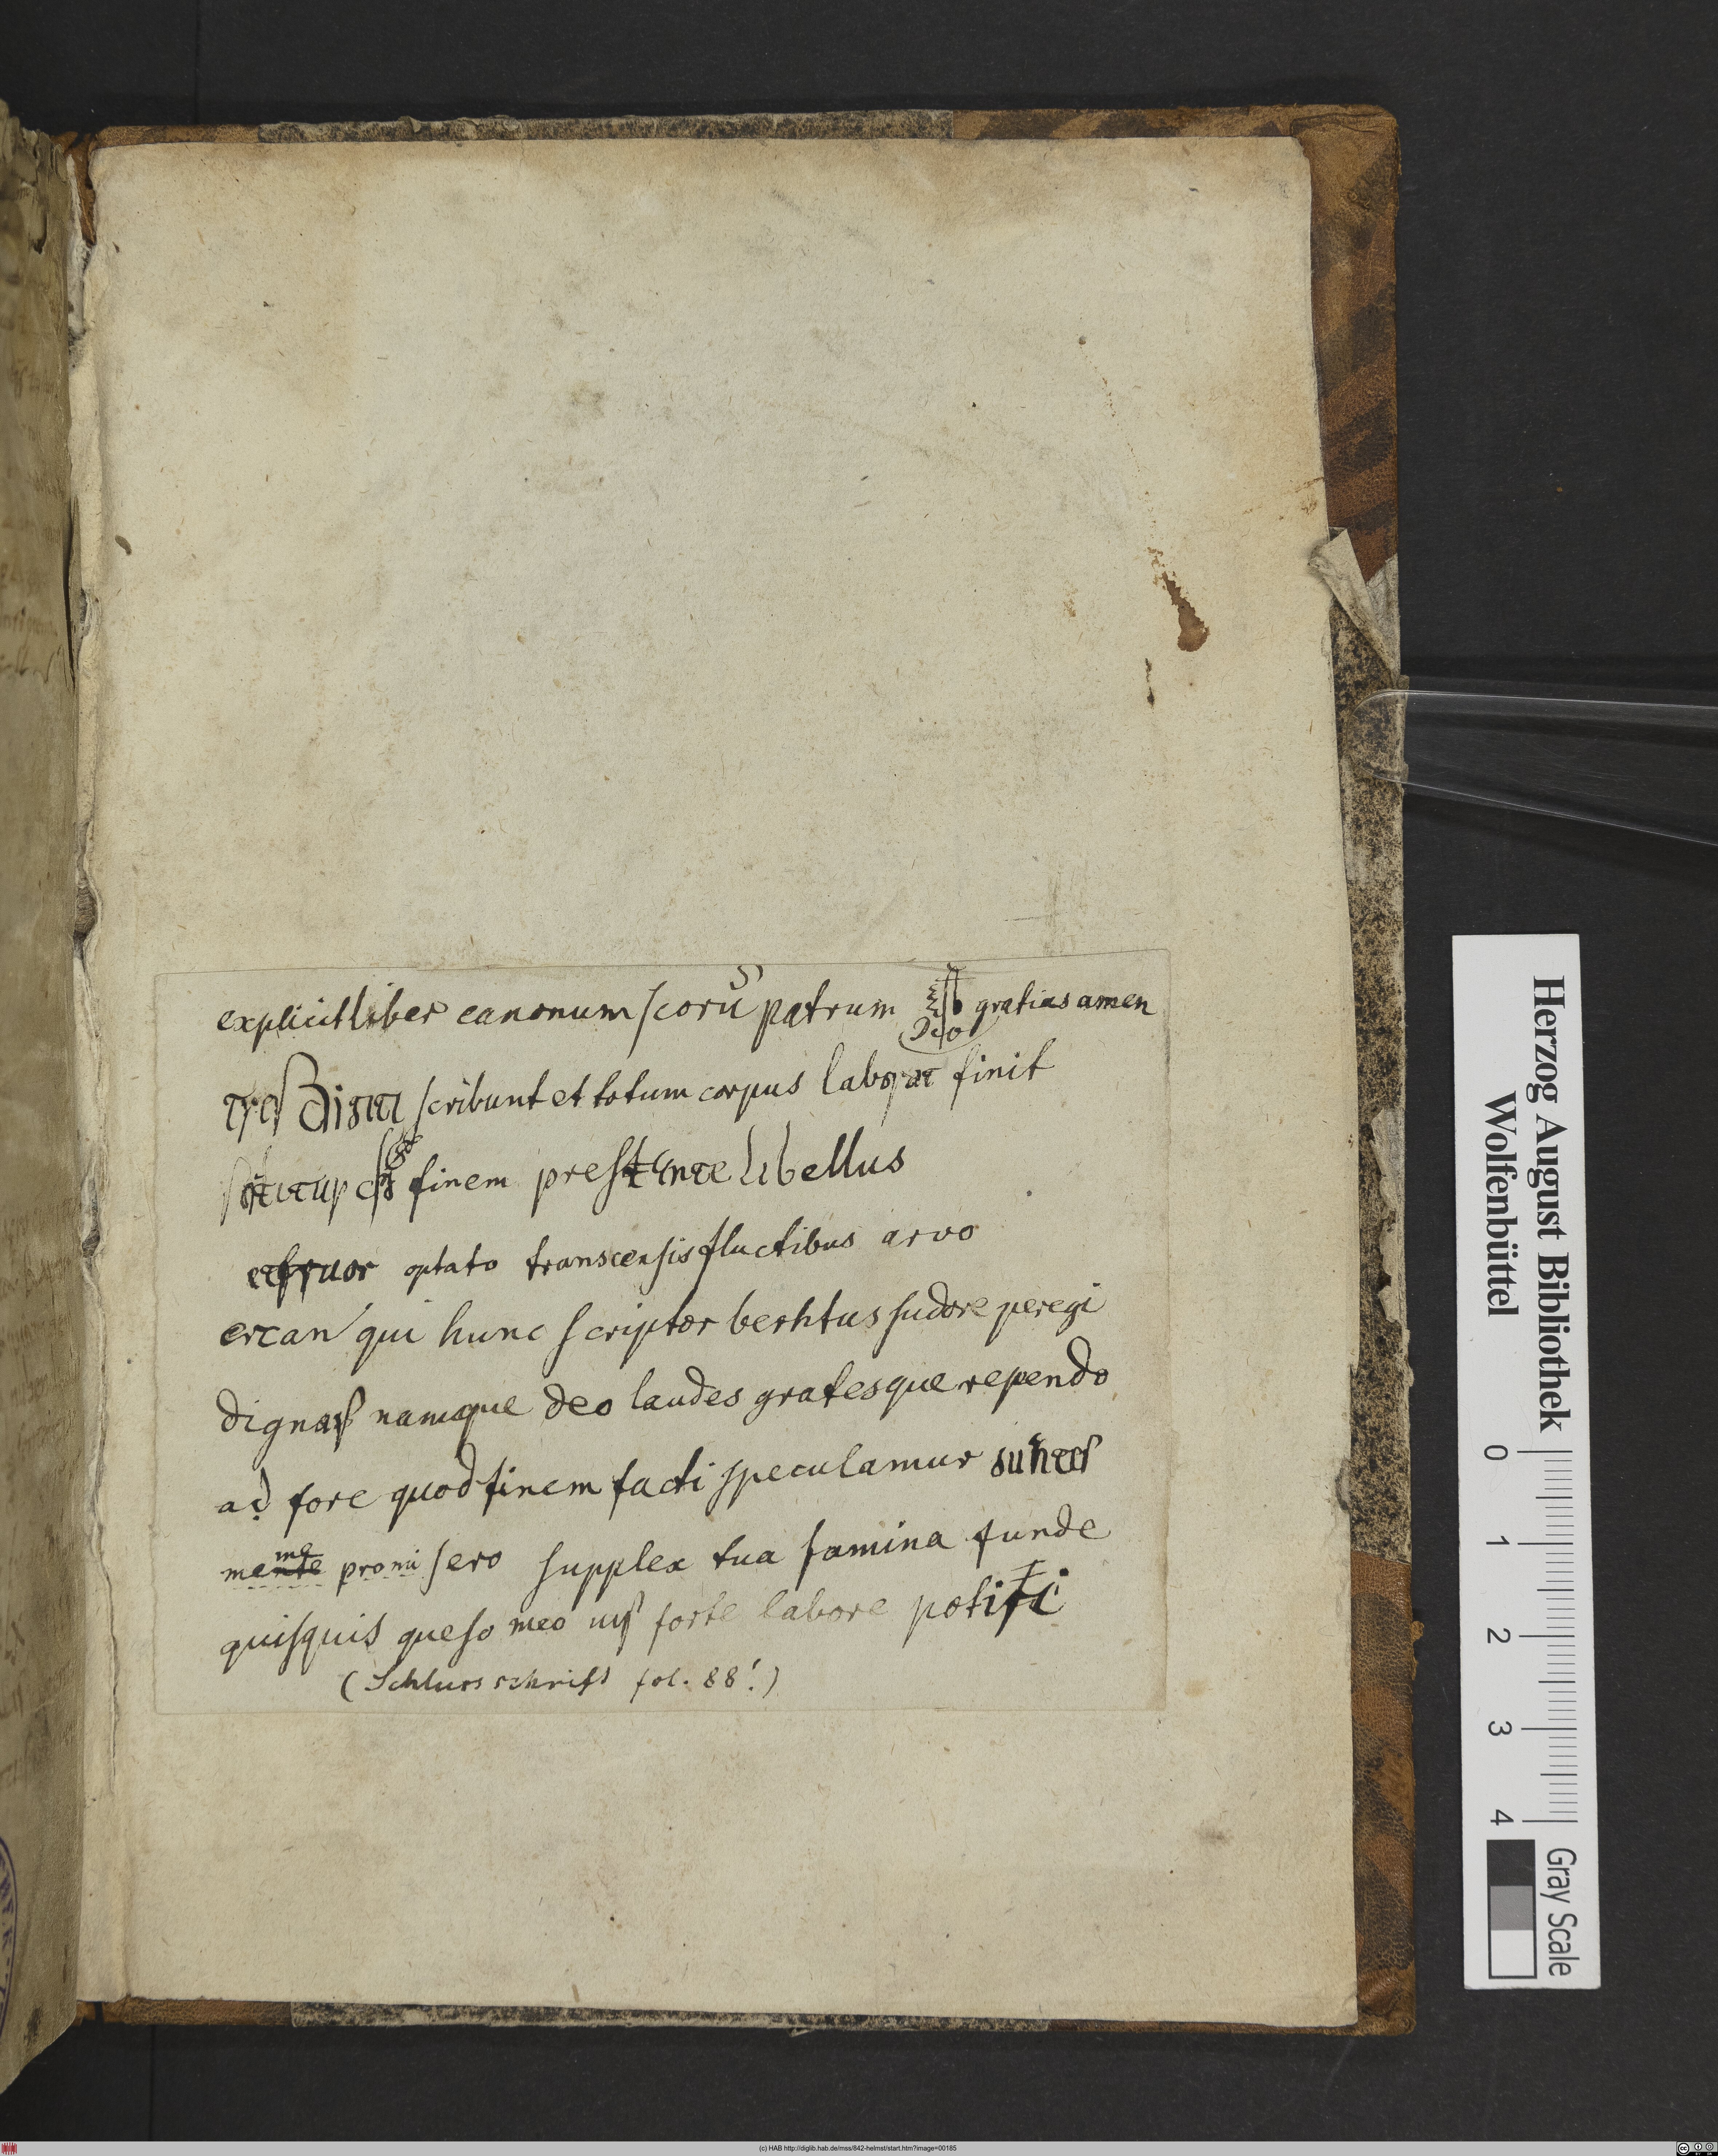 explicit liber canonum scorū patrum Deo gratias amen
tres digiti scribunt et totum corpus laborat finit
finem presente libellus
et fruor optato transcensis fluctibus arvo
ercan qui hunc scriptor berhtus sudore peregi
dignas namque deo laudes gratesque rependo
ad fore quod finem facti speculamur
meme promisero supplex tua famina funde
quisquis queso meo forte labore potiri
(Schlussschrift fol. 88!)
Herzog August Bibliothek
Wolfenbüttel
0 1 2 3 4
Gray Scale
(c) HAB http://diglib.hab.de/mss/842-helmst/start.htm?image=00185